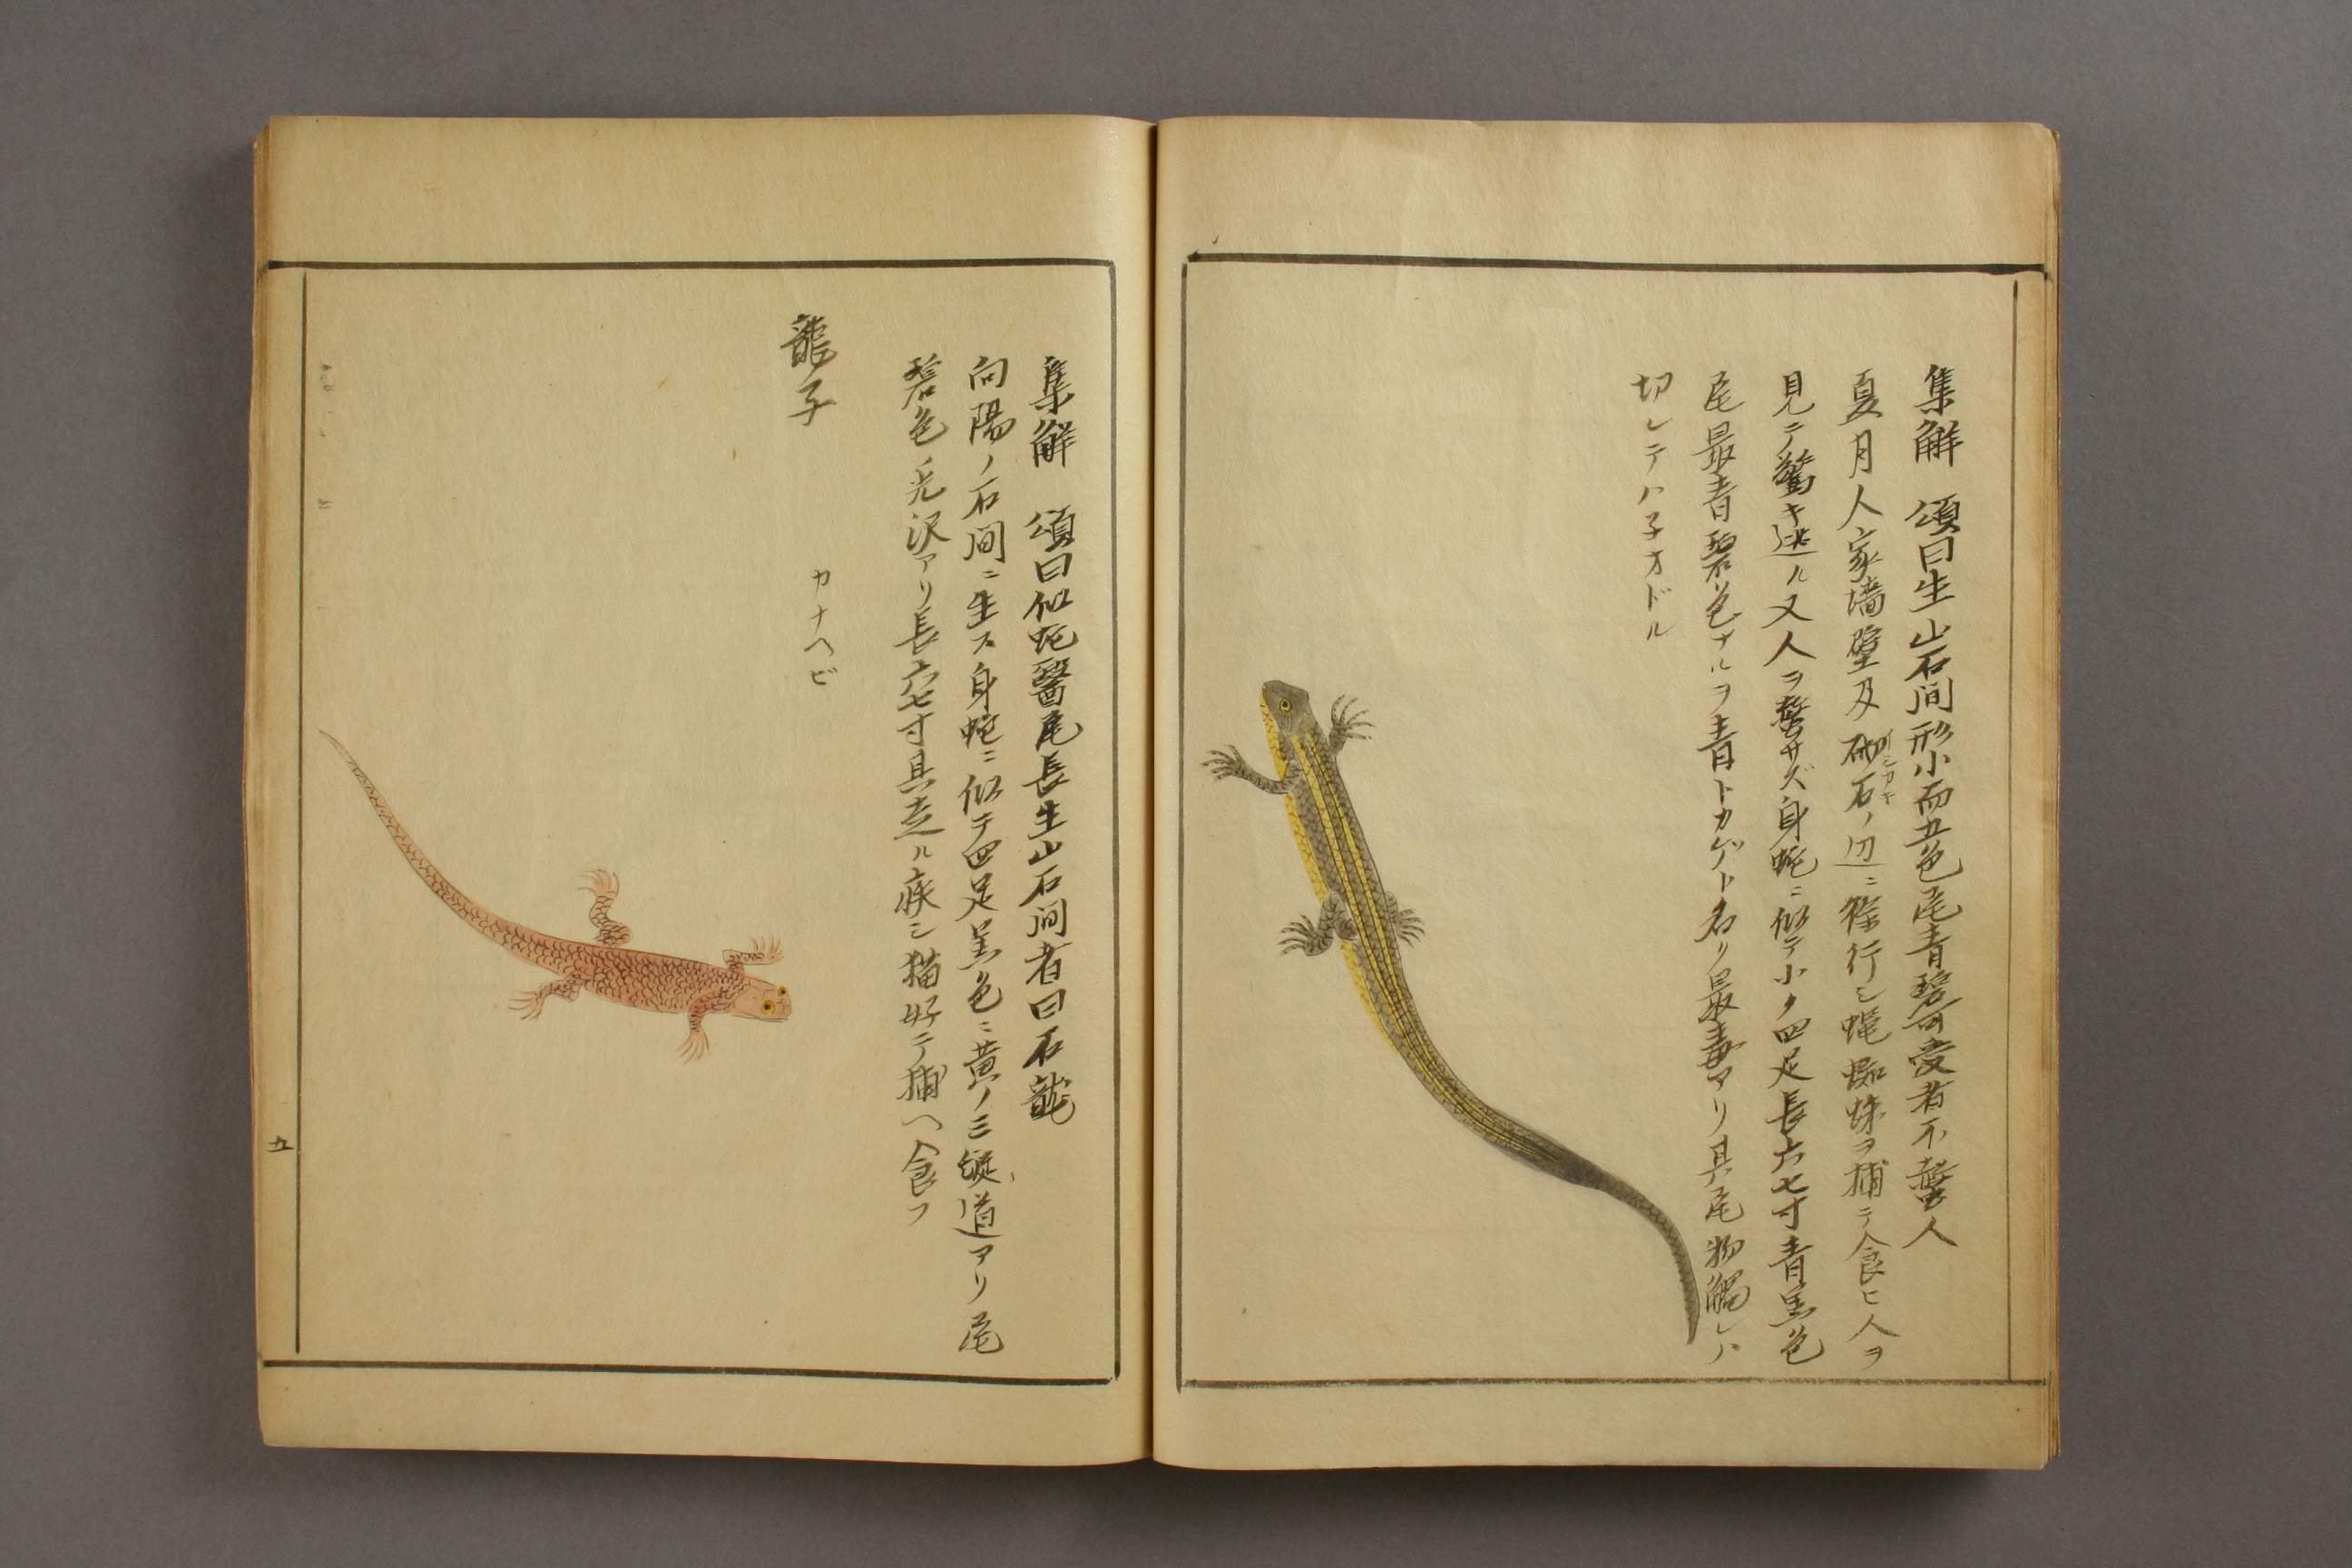 集解 頌曰生山石間形小而五色尾青碧可愛者不螫人
夏月人家墻壁及砌石ノ辺ニ徐行シ蝿蜘蛛ヲ捕テ食ヒ人ヲ
イシカキ
見テ驚キ逃ル又人ヲ螫サズ身蛇ニ似テ小ク四足長六七寸青黒色
尾最青碧色ナルヲ青トカゲト名リ最毒アリ其尾物觸レハ
切レテハ子オドル
集解 頌曰似蛇醫尾長生山石間者曰石龍
向陽ノ石間ニ生ス身蛇ニ似テ四足黒色ニ黄ノ三縦道アリ尾
碧色光沢アリ長六七寸其走ル疾シ猫好テ捕ヘ食フ
龍子
カナヘビ
五